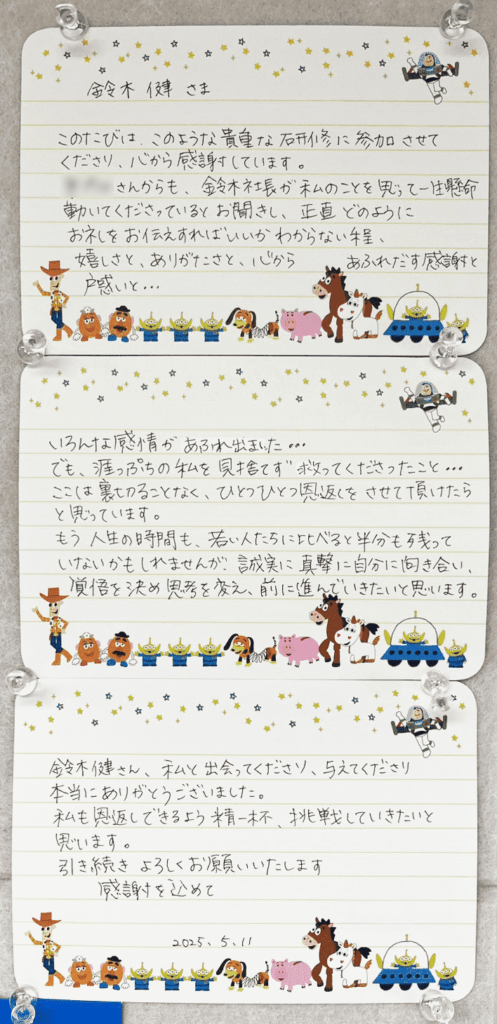 鈴木 健 さま
このたびは、このような貴重な研修に参加させて
くださり、心から感謝しています。
さんからも、鈴木社長が私のことを思って一生懸命
動いてくださっているとお聞きし、正直どのように
お礼をお伝えすればいいかわからない程、
嬉しさと、ありがたさと、心から あふれだす感謝と
戸惑いと…
いろんな感情があふれ出ました…
でも、崖っぷちの私を見捨てず救ってくださったこと…
ここは裏切ることなく、ひとつひとつ恩返しをさせて頂けたら
と思っています。
もう人生の時間も、若い人たちに比べると半分も残って
いないかもしれませんが、誠実に真摯に自分に向き合い、
覚悟を決め思考を変え、前に進んでいきたいと思います。
鈴木健さん、私と出会ってくださり、与えてくださり
本当にありがとうございました。
私も恩返しできるよう精一杯、挑戦していきたいと
思います。
引き続きよろしくお願いいたします
感謝を込めて
2025.5.11